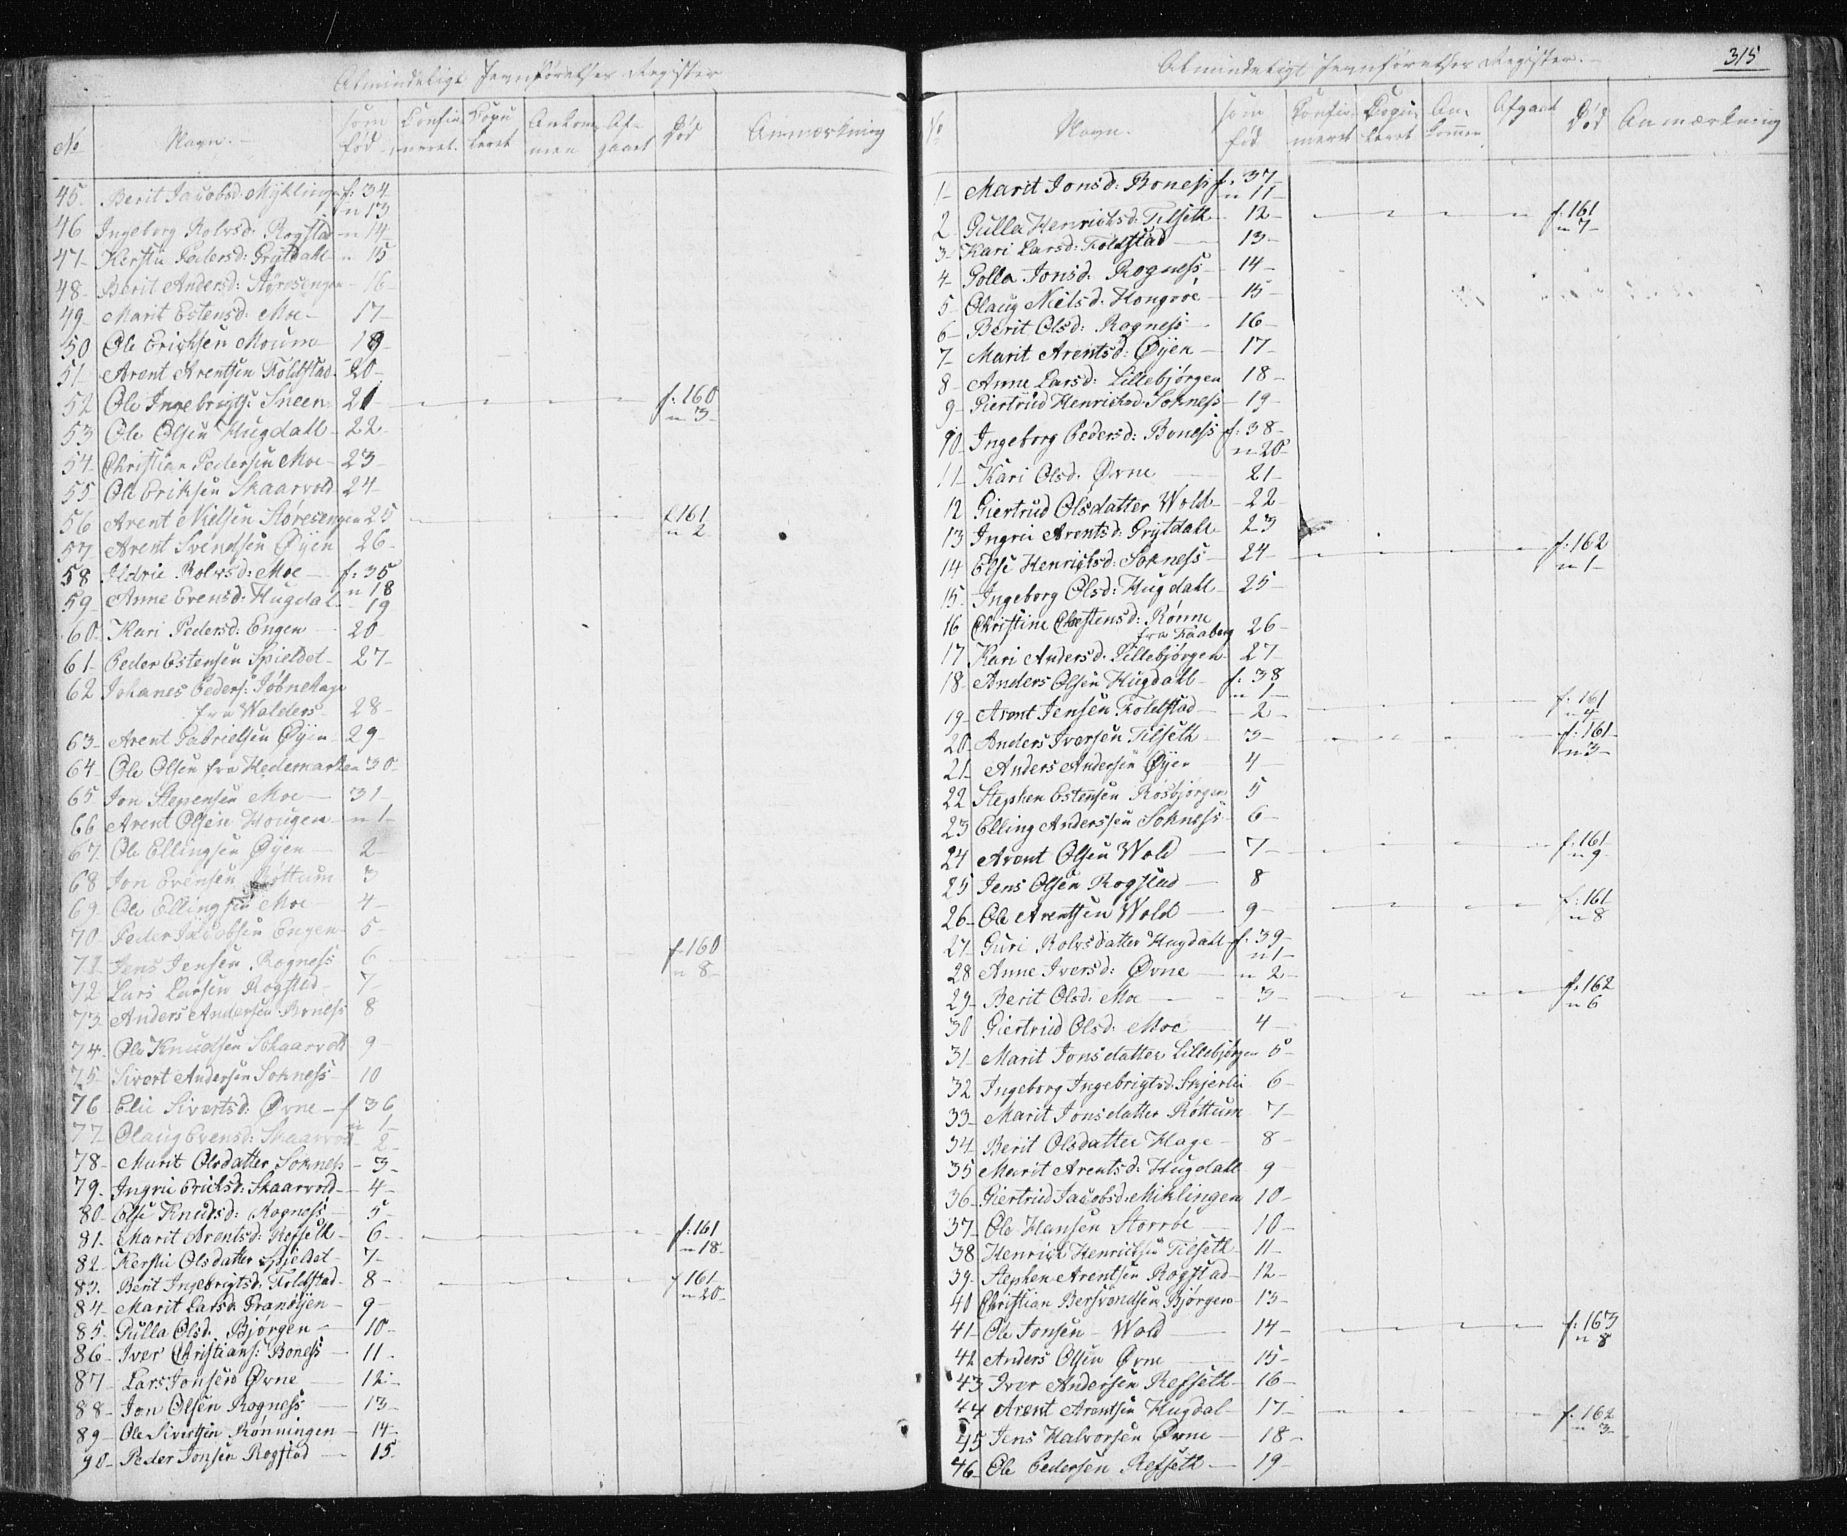 Almindeligt Jevnførelses Register
No Navn. som fød Confirmeret Copuleret Ankommen Afgaaet Død Anmærkning
45. Berit Jacobsd: Myklingen f. 34 n 13
46 Ingeborg Rolvsd: Rogstad n 14
47 Kersti Pedersd: Grytdahl n 15
48 Berit Andersd: Støresengen 16
49 Marit Estensd: Moe 17
50 Ole Ericksen Moum 18
51 Arent Arentsen Foldstad 20
52 Ole Ingebrigts: Sneen 21 f. 160 n 3
53 Ole Olsen Hugdahl 22
54 Christian Pedersen Moe 23
55 Ole Eriksen Skaarvold 24
56 Arent Nielsen Støresengen 25 f. 161 n 2
57 Arent Svendsen Øyen 26
58 Ildrie Rolvsd: Moe f. 35 n 18
59 Anne Evensd: Hugdal 19
60 Kari Pedersd: Engen 20
61 Peder Estensen Spieldet 27
62 Johanes Peders:
fra Walders 28
63 Arent Gabrielsen Øyen 29
64 Ole Olsen fra Hedemarken 30
65 Jon Stepensen Moe 31
66 Arent Olsen Hougen n 1
67 Ole Ellingsen Øyen 2
68 Jon Evensen Røttum 3
69 Ole Ellingsen Moe 4
70 Peder Jacobsen Engen 5
71 Jens Jensen Rogness 6 f. 160 n 8
72 Lars Larsen Rogstad 7
73 Anders Andersen Boness 8
74 Ole Knudsen Skaarvold 9
75 Sivert Andersen Sokness 10
76 Elie Sivertsd: Øvne f 36 n 1
77 Olaug Evensd: Skaarvold 2
78 Marit Olsdatter Sokness 3
79 Ingrie Ericksd: Skaarvold 4
80 Else Knudsd: Rogness 5
81 Marit Arentsd: Refseth 6 f. 161 n 18
82 Kersti Olsdatter Spjeldet 7
83. Berit Ingebrigtsd: Foldstad 8 f 161 n 20
84 Marit Larsd: Granøyen 9
85 Gulla Olsd: Bjørgen 10
86 Iver Christians: Boness 11
87 Lars Jonsen Øvne 12
88 Jon Olsen Rogness 13
89 Ole Sivertsen Rønningen 14
90 Peder Jonsen Rogstad 15
315
Almindeligt Jevnførelses Register
No Navn. som fød Confirmeret Copuleret Ankommen Afgaaet Død Anmærkning
1 Marit Jonsd: Boness f. 37 n 11
2 Gulla Henriksd: Tilseth 12 f. 161 n 7
3 Kari Larsd: Foldstad 13
4 Golla Jonsd: Rogness 14
5 Olaug Nielsd: Hongroe 15
6 Berit Olsd: Rogness 16
7 Marit Arentsd: Øyen 17
8 Anne Larsd: Lillebjørgen 18
9 Giertrud Henriksd: Sokness 19
10 Ingeborg Pedersd: Boness f. 38 n 20
11 Kari Olsd: Øvne 21
12 Giertrud Olsdatter Wold 22
13 Ingrie Arentsd: Grytdahl 23
14 Else Henriksd: Sokness 24 f. 162 n 1
15 Ingeborg Olsd: Hugdahl 25
16 Christine Chestensd: Rønne
fra Faaberg 26
17 Kari Andersd: Lillebjørgen 27
18 Anders Olsen Hugdahl f. 38 n 1
19 Arent Jensen Foldstad 2 f. 161 n 4
20 Anders Iversen Tilseth 3 f. 161 n 3
21 Anders Andersen Øyen 4
22 Stephen Estensen Rosbjørgen 5
23 Elling Anderssen Sokness 6
24 Arent Olsen Wold 7 f. 161 n 9
25 Jens Olsen Rogstad 8
26 Ole Arentsen Wold 9 f. 161 n 8
27 Guri Rolvsdatter Hugdahl f. 39 n 1
28 Anne Iversd: Øvne n 2
29 Berit Olsd: Moe 3 f. 162 n 6
30 Giertrud Olsd: Moe 4
31 Marit Jonsdatter Lillebjørgen 5
32 Ingeborg Ingebrigtsd: Skjerlie 6
33 Marit Jonsdatter Røttum 7
34 Berit Olsdatter Hage 8
35 Marit Arentsd: Hugdahl 9
36 Giertrud Jacobsd: Miklingen 10
37 Ole Hansen Storrøe 10
38 Henrick Henricksen Tilseth 11
39 Stephen Arentsen Rogstad 12
40 Christian Bersvendsen Bjørgen 13
41 Ole Jonsen Wold 14 f. 163 n 8
42 Anders Olsen Øvne 15
43 Iver Andersen Refseth 16
44 Arent Arentsen Hugdal 17 f. 162 n 3
45 Jens Halvorsen Øvne 18
46 Ole Pedersen Refseth 19